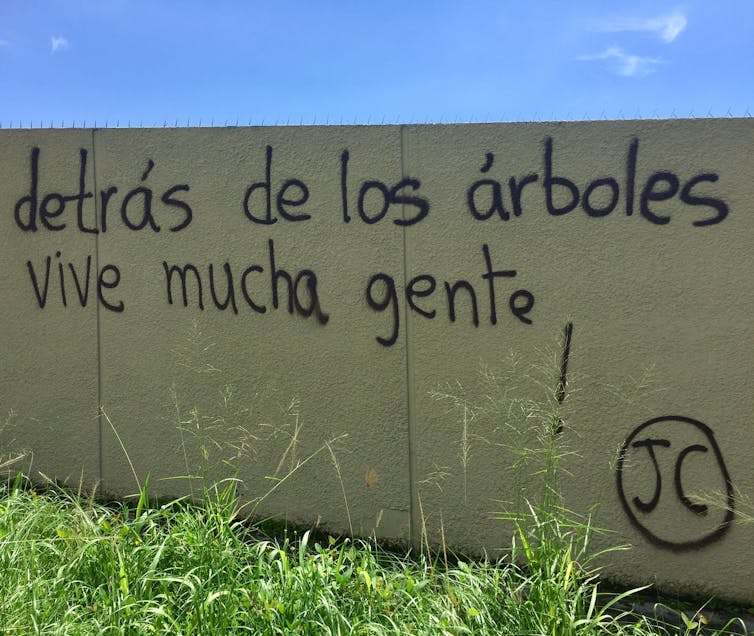 detrás de los árboles
vive mucha gente
JC